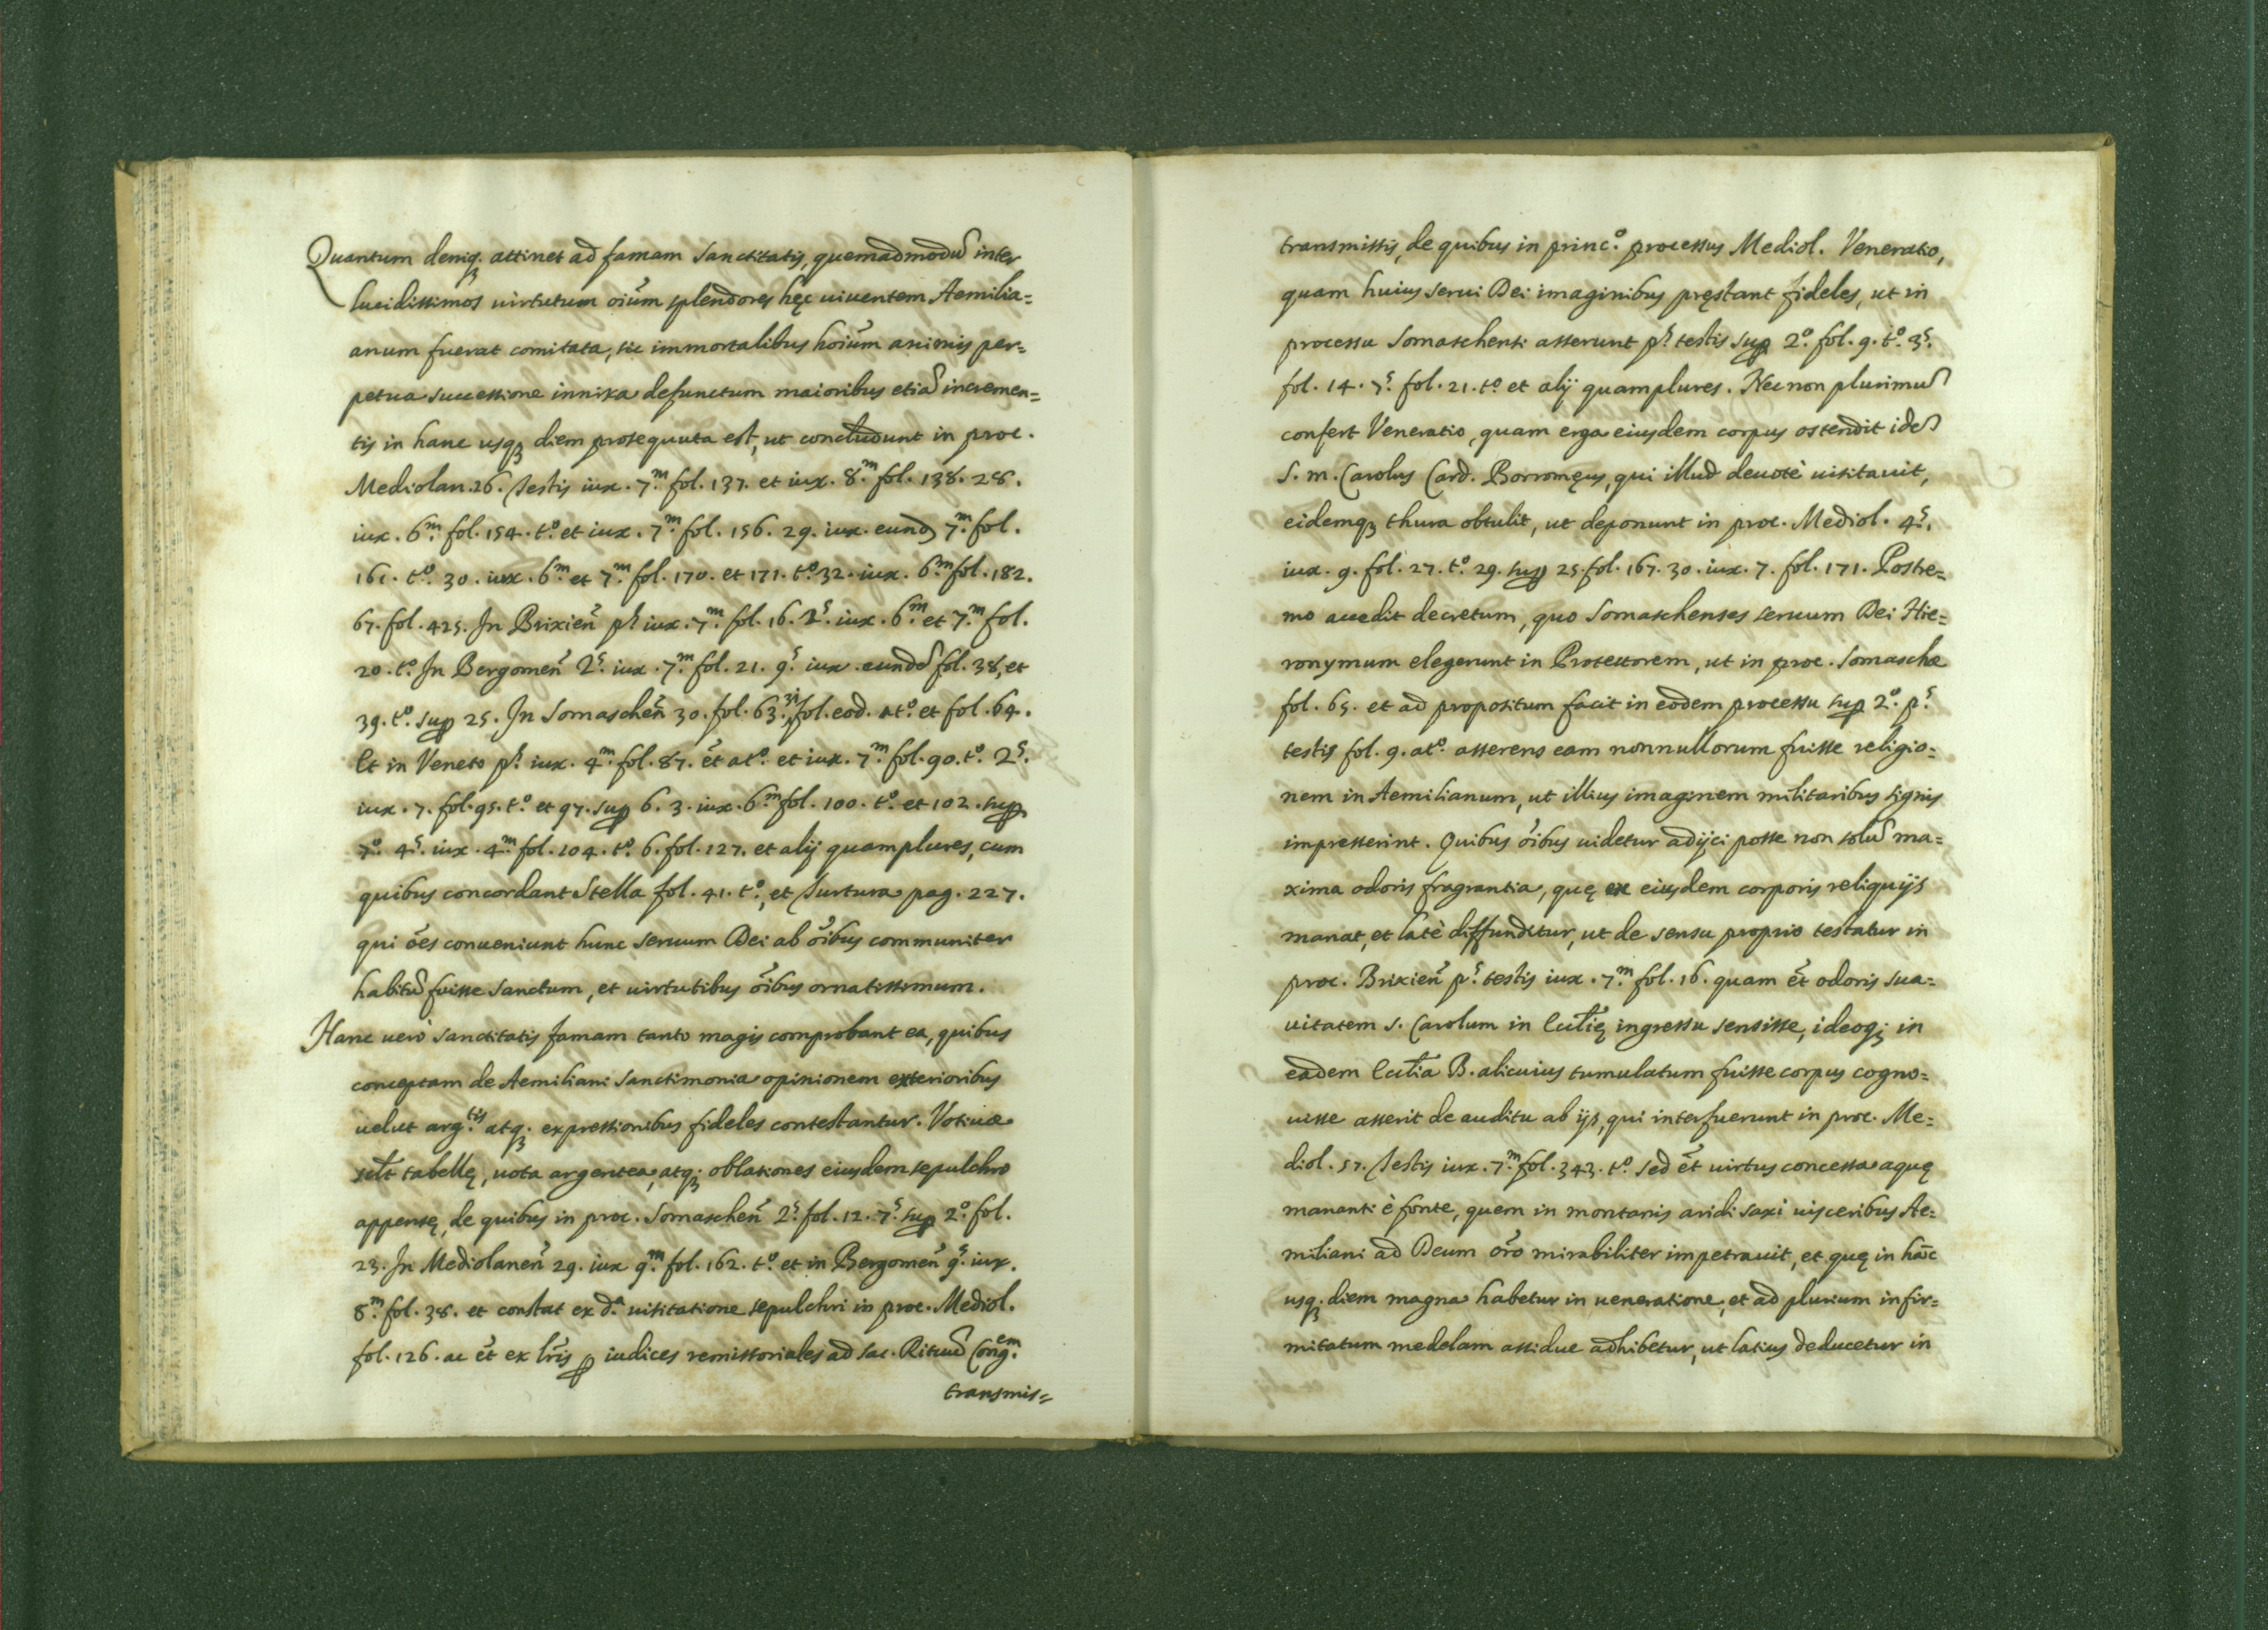 Quantum deniq; attinet ad famam sanctitatis, quemadmodū inter
lucidissimos uirtutum oīum splendores hęc uiuentem Aemilia=
anum fuerat comitata, sic immortalibus hoīum animis per=
petua successione innixa defunctum maioribus etiā incremen=
tis in hanc usq; diem prosequuta est, ut concludunt in proc.
Mediolan. 26. testis iux. 7.m fol. 137. et iux. 8.m fol. 138. 28.
iux. 6.m fol. 154. t.o et iux. 7.m fol. 156. 29. iux. eund 7.m fol.
161. t.o 30. iux. 6.m et 7.m fol. 170. et 171. t.o 32. iux. 6.m fol. 182.
67. fol. 425. In Brixieñ ps iux. 7.m fol. 16. 2.s iux. 6.m et 7.m fol.
20. t.o In Bergomeñ 2.s iux. 7.m fol. 21. 9.s iux. eundē fol. 38, et
39. t.o sup 25. In Somascheñ 30. fol. 63. 31 fol. eod. at.o et fol. 64.
Et in Veneto p.s iux. 4.m fol. 87. ēt at.o et iux. 7.m fol. 90. t.o 2.s
iux. 7. fol. 95. t.o et 97. sup 6. 3. iux. 6.m fol. 100. t.o et 102. sup
7.o 4.s iux. 4.m fol. 104. t.o 6. fol. 127. et alij quamplures, cum
quibus concordant Stella fol. 41. t.o, et Turtura pag. 227.
qui ōes conueniunt hunc seruum Dei ab ōibus communiter
habitū fuisse sanctum, et uirtutibus ōibus ornatissimum.
Hanc uerò sanctitatis famam tanto magis comprobant ea, quibus
conceptam de Aemiliani sanctimonia opinionem exterioribus
uelut arg.tis atq; expressionibus fideles contestantur. Votiuæ
sclt tabellę, uota argentea, atq; oblationes eiusdem sepulchro
appensę, de quibus in proc. Somascheñ 2.s fol. 12. 7.s sup 2.o fol.
23. In Mediolaneñ 29. iux 9.m fol. 162. t.o et in Bergomeñ 9.s iux.
8.m fol. 38. et constat ex d.a uisitatione sepulchri in proc. Mediol.
fol. 126. ac ēt ex lrīs p iudices remissoriales ad sac. Rituū Cong.em
transmis=
transmissis, de quibus in princ.o processus Mediol. Veneratio,
quam huius serui Dei imaginibus pręstant fideles, ut in
processu Somaschensi asserunt p.s testis sup 2.o fol. 9. t.o 3.s
fol. 14. 7.s fol. 21. t.o et alij quamplures. Nec non plurimū
confert Veneratio, quam erga eiusdem corpus ostendit idē
S. m. Carolus Card. Borromęus, qui illud deuotè uisitauit,
eidemq; thura obtulit, ut deponunt in proc. Mediol. 4.s
iux. 9. fol. 27. t.o 29. sup 25 fol. 167. 30. iux. 7. fol. 171. Postre=
mo accedit decretum, quo Somaschenses seruum Dei Hie=
ronymum elegerunt in Protectorem, ut in proc. Somaschæ
fol. 65. et ad propositum facit in eodem processu sup 2.o p.s
testis fol. 9. at.o asserens eam nonnullorum fuisse religio=
nem in Aemilianum, ut illius imaginem militaribus signis
impresserint. Quibus ōibus uidetur adijci posse non solū ma=
xima odoris fragrantia, quę ex eiusdem corporis reliquijs
manat, et latè diffunditur, ut de sensu proprio testatur in
proc. Brixieñ p.s testis iux. 7.m fol. 16. quam ēt odoris sua=
uitatem S. Carolum in Ecclīę ingressu sensisse, ideoq; in
eadem Ecclīa B. alicuius tumulatum fuisse corpus cogno=
uisse asserit de auditu ab ijs, qui interfuerunt in proc. Me=
diol. 57. testis iux. 7.m fol. 343. t.o sed ēt uirtus concessa aquę
mananti è fonte, quem in montanis aridi saxi uisceribus Ae=
miliani ad Deum orō mirabiliter impetrauit, et quę in hāc
usq; diem magna habetur in ueneratione, et ad plurium infir=
mitatum medelam assidue adhibetur, ut latius deducetur in